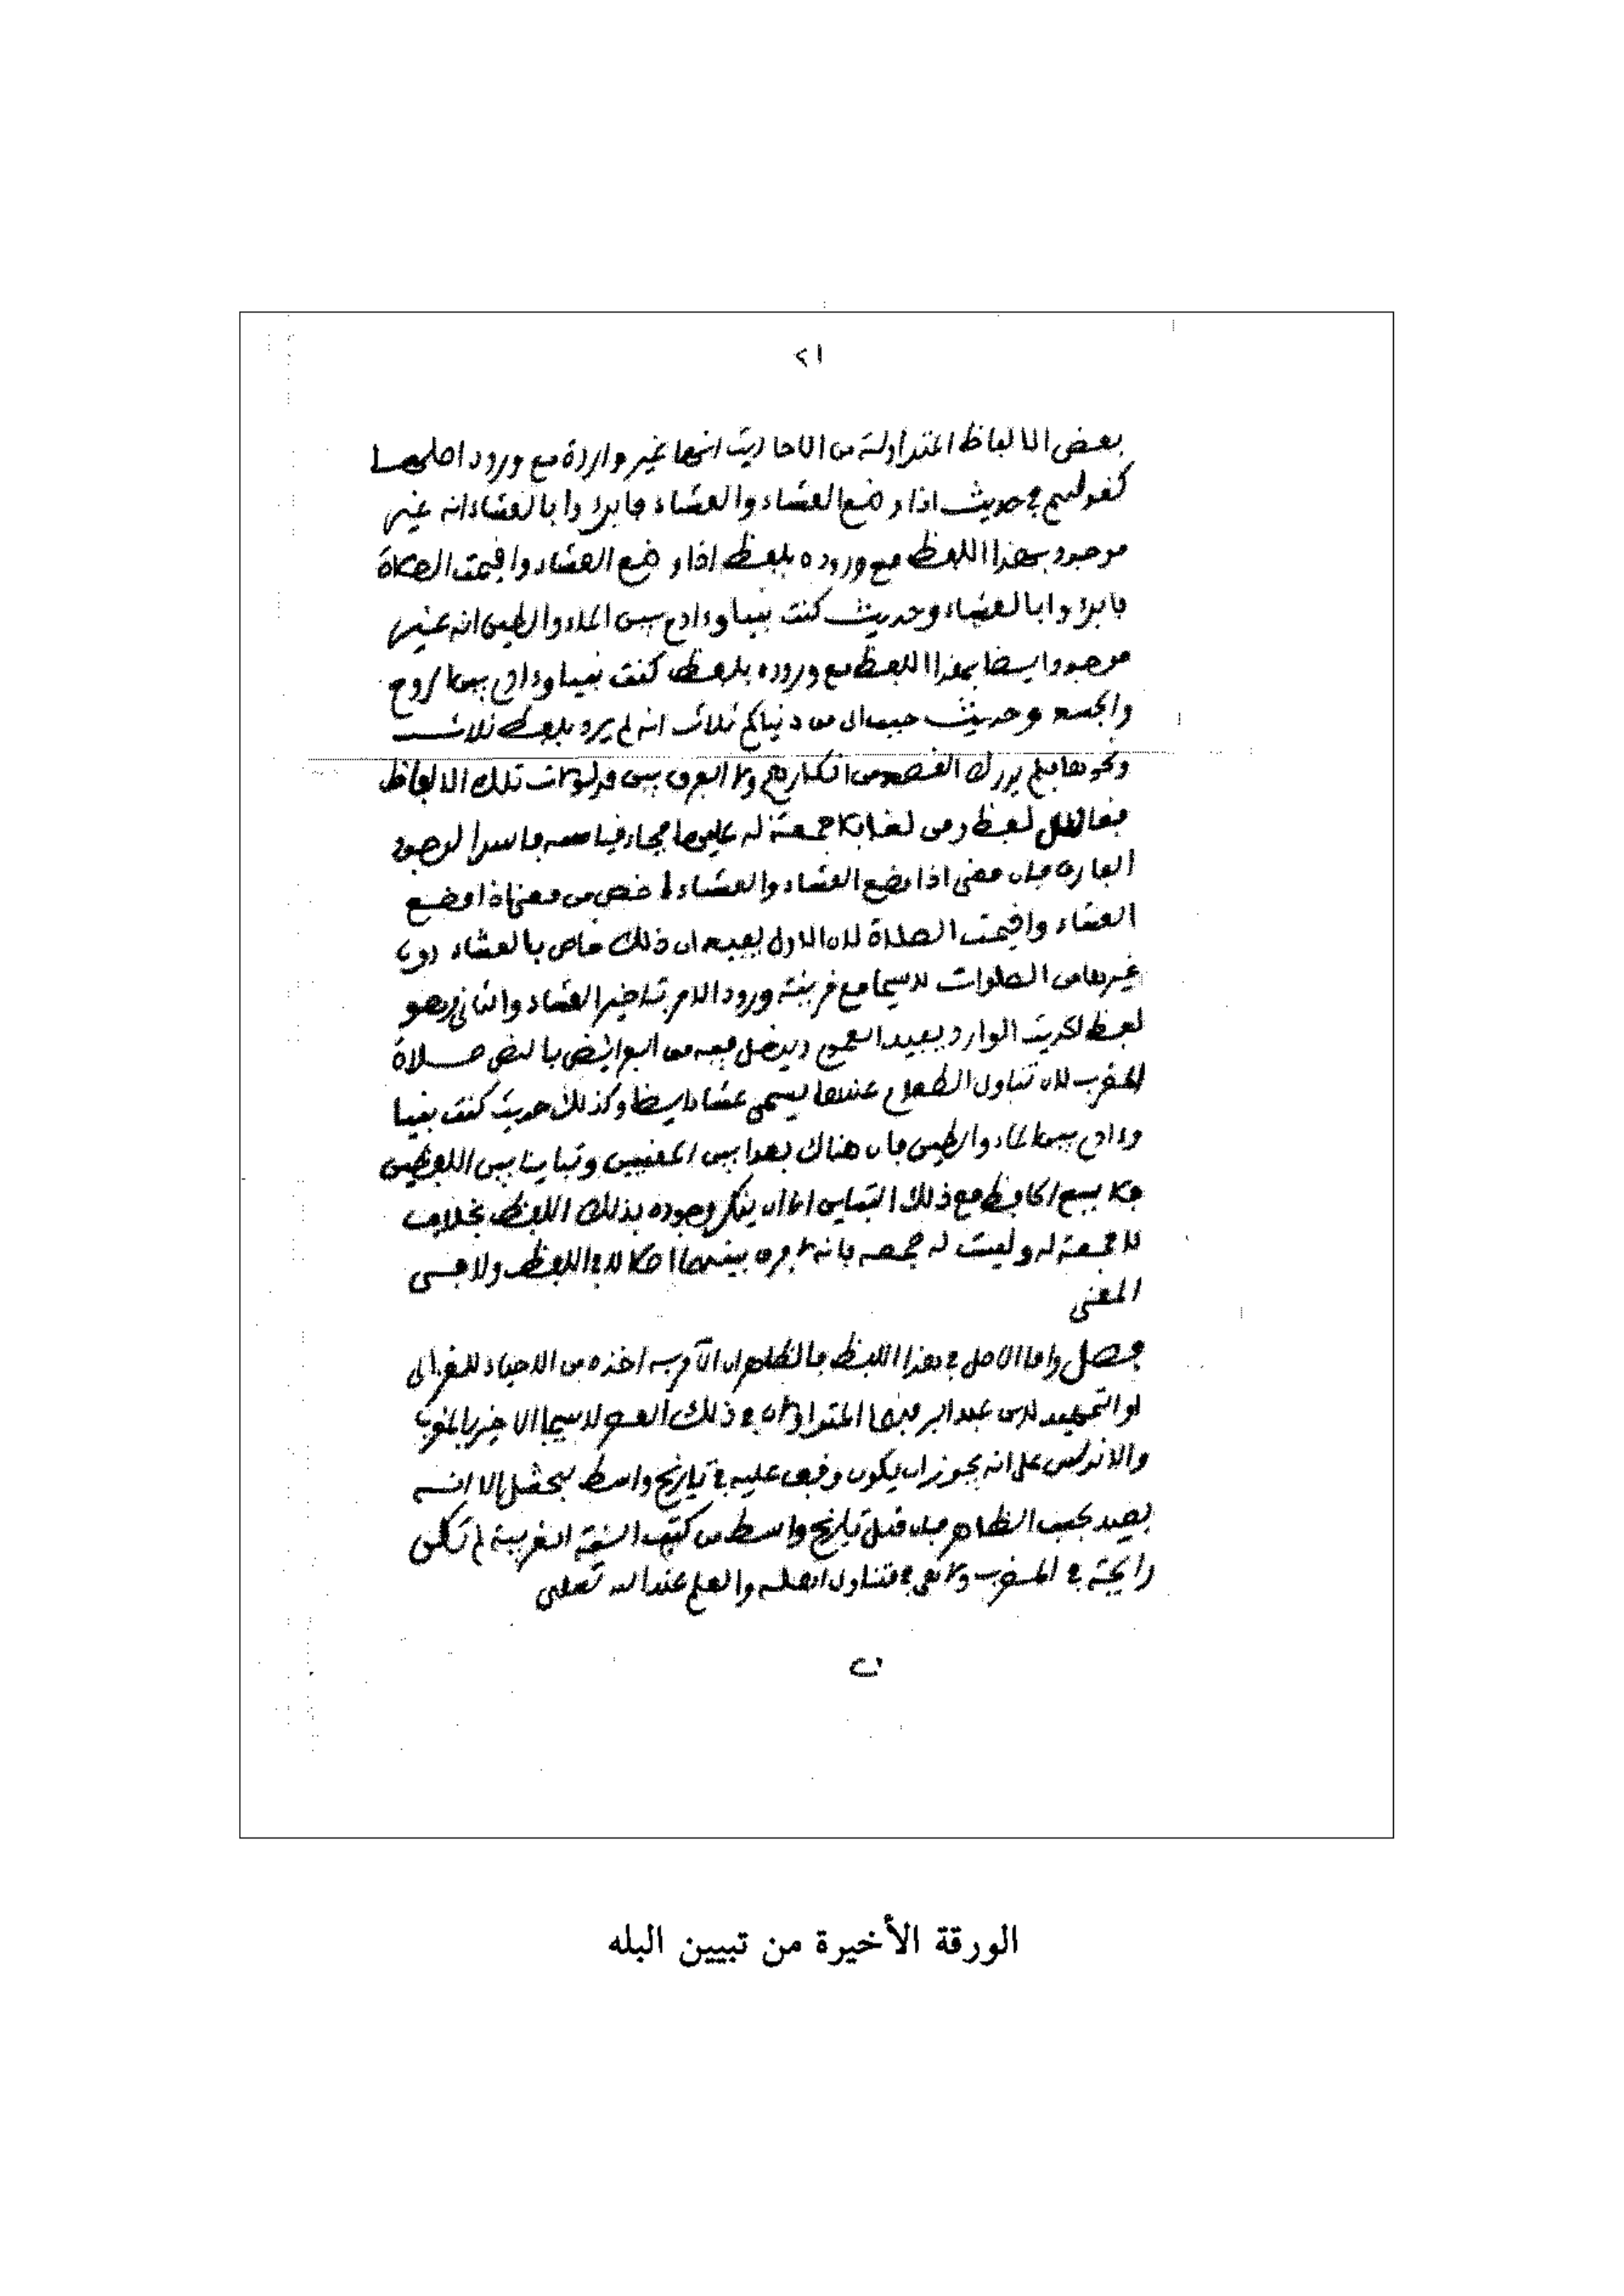 ٢١
بعض الالفاظ المتداولة من الاحاديث انها غير واردة مع ورود اصلها
كقولهم في حديث اذا وضع العشاء والعشاء فابدءوا بالعشاء انه غير
موجود بهذا اللفظ مع وروده بلفظ اذا وضع العشاء واقيمت الصلاة
فابدءوا بالعشاء وحديث كنت نبيا وءادم بين الماء والطين انه غير
موجود ايضا بهذا اللفظ مع وروده بلفظ كنت نبيا وءادم بين الروح
والجسد وحديث حبب الي من دنياكم ثلاث انه لم يرد بلفظ ثلاث
ونحوها فلم يدرك القصد من انكارهم ولا الفرق بين مدلولات تلك الالفاظ
فقال لكل لفظ ومن لغا فلا جمعة له عليها فجاء قياسه فاسدا لوجود
الفارق فان معنى اذا وضع العشاء والعشاء اخص من معنى اذا وضع
العشاء واقيمت الصلاة لان الاول يفيد ان ذلك خاص بالعشاء دون
غيرها من الصلوات لاسيما مع قرينة ورود الامر بتاخير العشاء والثاني وهو
لفظ الحديث الوارد يفيد العموم ويدخل فيه من الفرائض بالنص صلاة
المغرب لان تناول الطعام عندها يسمى عشاء ايضا وكذلك حديث كنت نبيا
وءادم بين الماء والطين فان هناك بعدا بين المعنيين وتباينا بين اللفظين
فلا يسع الحافظ مع ذلك التباين الا ان ينكر وجوده بذلك اللفظ بخلاف
لا جمعة له وليست له جمعة فانه لا فرق بينهما اصلا لا في اللفظ ولا في
المعنى
فصل واما الاصل في هذا اللفظ فالظاهر ان الاقرب اخذه من الاحياء للغزالي
او التمهيد لابن عبد البر فهما المتداولان في ذلك العصر لاسيما الاخير بالمغرب
والاندلس على انه يجوز ان يكون وقف عليه في تاريخ واسط لبحشل الا انه
بعيد بحسب الظاهر فان قبل تاريخ واسط من كتب السنة الغريبة لم تكن
رايجة في المغرب ولا هي في متناول اهله والعلم عند الله تعالى
الورقة الأخيرة من تبيين البله